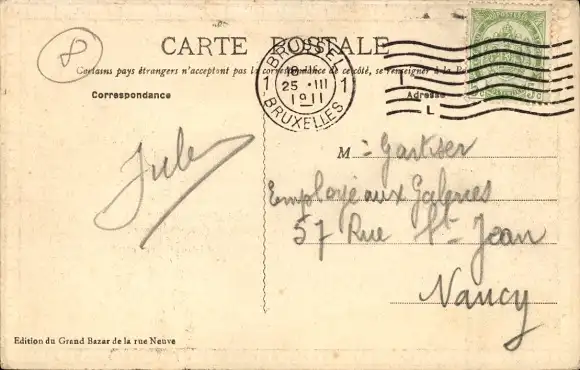 8
CARTE POSTALE
Certains pays étrangers n'acceptent pas la correspondance de ce côté, se renseigner à la
Correspondance
Adresse
BRUSSEL
1 1
25 · III
1911
BRUXELLES
L
Jules
M
Employé aux Galeries
57 Rue St Jean
Nancy
Edition du Grand Bazar de la rue Neuve